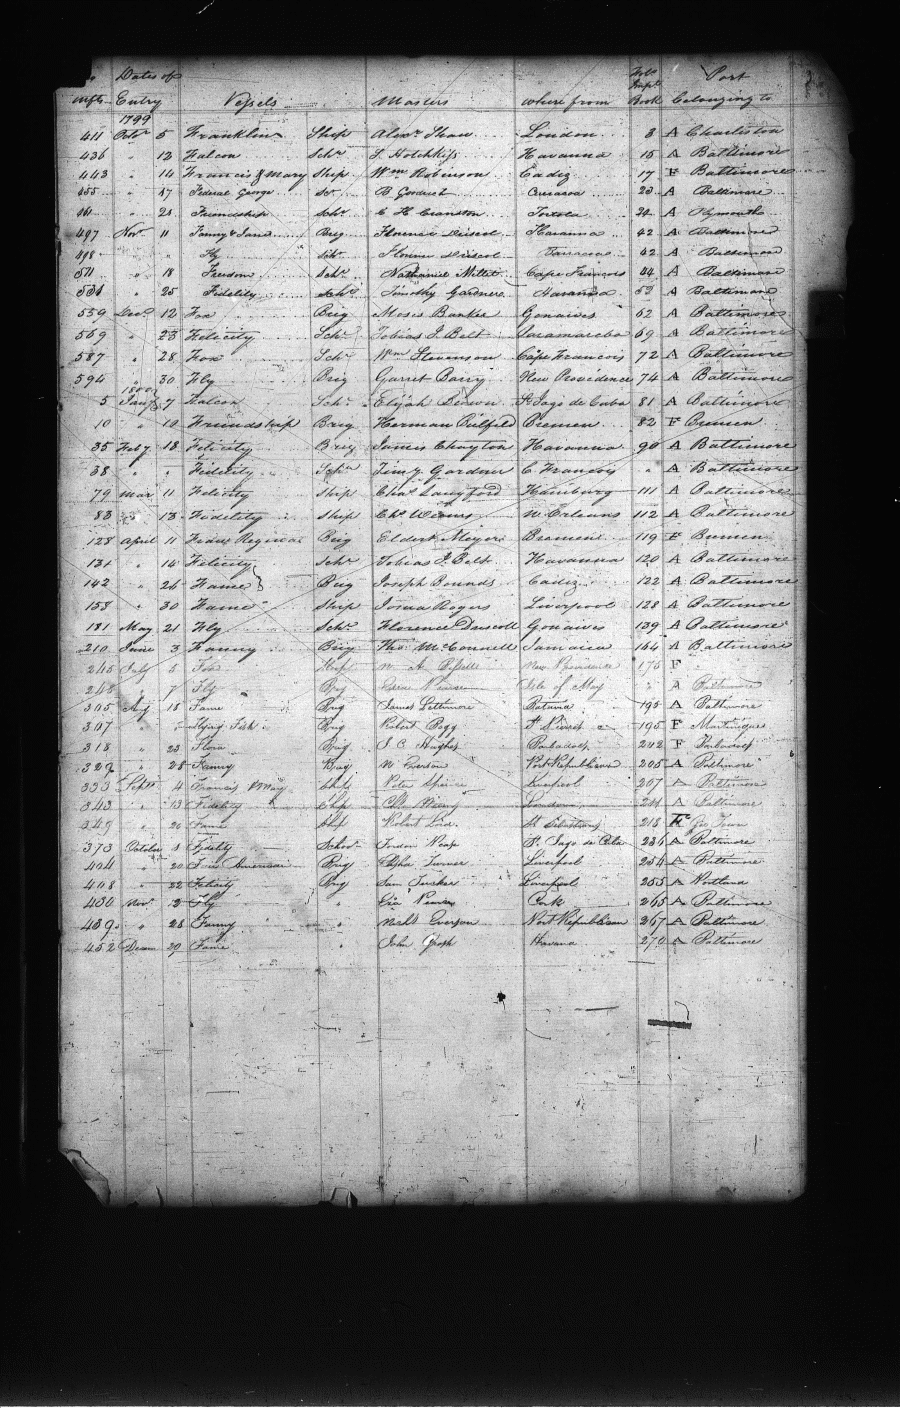 Dates of Port
Mfts Entry Vessels Masters where from Book belonging to
1799
411 Octr 5 Franklin Ship Alexr Shaw London 3 A Charleston
436 " 12 Falcon Schr Hotchkiss Havanna 15 A Baltimore
443 " 14 Francis & Mary Ship Wm Robinson Cadiz 17 F Baltimore
455 " 17 Federal George Sr B Goodrich Curracoa 20 A Baltimore
461 " 21 Friendship Schr C H Cranston Tortola A Plymouth
497 Novr 11 Fanny & Jane Brig Florence Driscol Havanna 42 A Baltimore
498 " " Fly Schr Florence Driscol 42 A Baltimore
511 " 18 Freedom Schr Nathaniel Cape Francois 44 A Baltimore
" 25 Fidelity Schr Timothy Gardner Havanna 52 A Baltimore
559 Decr 12 Fox Brig Moses Banker Gonaives 62 A Baltimore
569 " 23 Felicity Schr Tobias J. Belt 69 A Baltimore
587 " 28 Fox Schr Wm Stevenson Cape Francois 72 A Baltimore
594 " 30 Fly Brig Garret Barry New Providence 74 A Baltimore
1800
5 Jany 7 Falcon Schr Elijah St Jago de Cuba 81 A Baltimore
10 " 19 Friendship Brig Herman Bremen 82 F Bremen
35 Feby 18 Felicity Brig James Clayton Havanna 90 A Baltimore
38 " " Fidelity Schr Timy Gardner C. Francois " A Baltimore
79 Mar 11 Felicity Ship Chas Langford Hamburg 111 A Baltimore
83 " 13 Fidelity Ship Chs Weems N. Orleans 112 A Baltimore
128 April 11 Brig Eldert Meyer Bremen 119 F Bremen
131 " 14 Felicity Schr Tobias J. Belt Havanna 120 A Baltimore
142 " 26 Fame Brig Joseph Bounds Cadiz 122 A Baltimore
158 " 30 Fame Ship Josua Rogers Liverpool 128 A Baltimore
181 May 21 Fly Schr Florence Driscoll Gonaives 139 A Baltimore
210 June 3 Fanny Brig Thos McConnell Jamaica 154 A Baltimore
245 July 5 Fox Ship New Providence 175 F
248 " 7 Fly Brig Isle of May " A Baltimore
305 Aug 18 Fame Brig James Lattimore Batavia 195 A Baltimore
307 " " Flying Fish Brig Robert Bogg 195 F Martinique
318 " 23 Flora Brig J C Hughes Barbadoes 202 F Barbadoes
329 " 28 Fanny Brig N Everson Port Republican 205 A Baltimore
333 Sepr 4 Francis & Mary Ship Peter Liverpool 207 A Baltimore
343 " 13 Fidelity Ship Chs Weems London 211 A Baltimore
349 " 20 Fame Ship Robert St Sebastians 218
373 October 1 Fidelity Schor St Jago de Cuba 236 A Baltimore
404 " 20 True American Brig Elisha Turner Liverpool 254 A Baltimore
408 " 22 Felicity Brig Sam Tucker Liverpool 255 A Portland
430 Novr 12 Fly " Cork 265 A Baltimore
439 " 28 Fanny " Nichs Everson Port Republican 267 A Baltimore
452 Decem 29 Fame " John Havana 270 A Baltimore